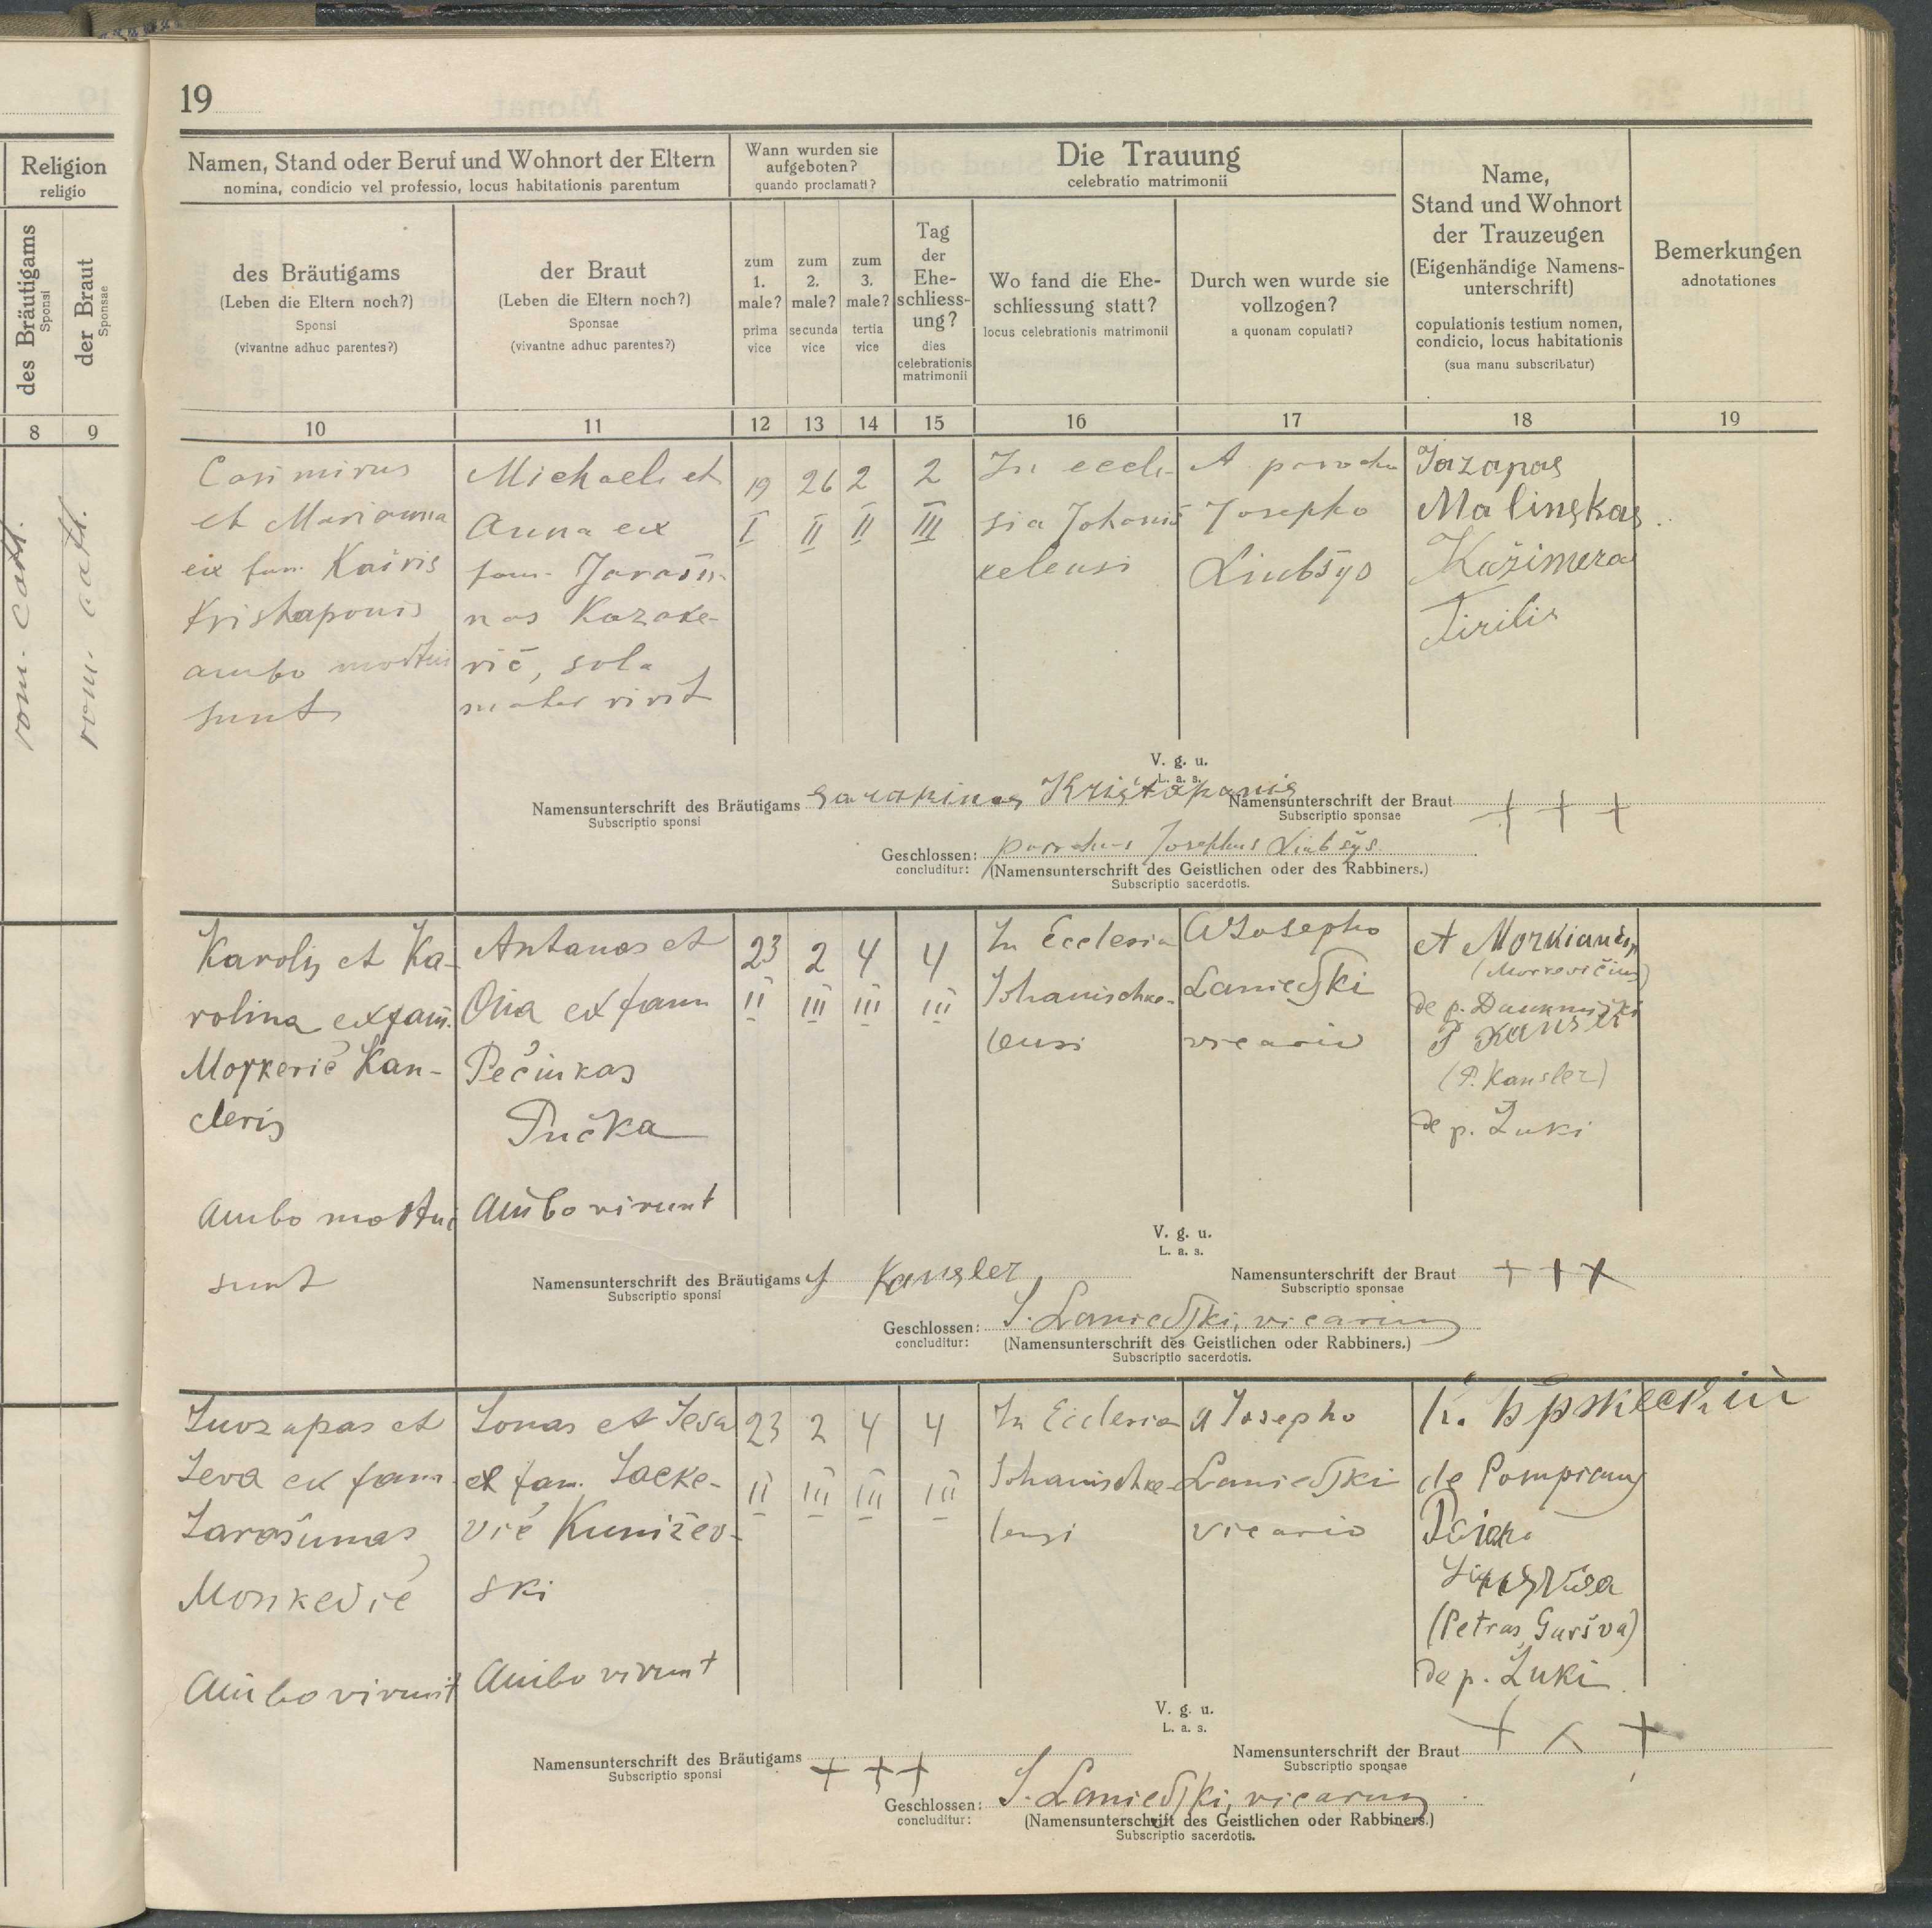 19
Religion
religio
des Bräutigams
Sponsi
der Braut
Sponsae
8
9
rom. cath.
rom. cath.
Namen, Stand oder Beruf und Wohnort der Eltern
nomina, condicio vel professio, locus habitationis parentum
Wann wurden sie
aufgeboten?
quando proclamati?
Die Trauung
celebratio matrimonii
Name,
Stand und Wohnort
der Trauzeugen
(Eigenhändige Namens-
unterschrift)
copulationis testium nomen,
condicio, locus habitationis
(sua manu subscribatur)
Bemerkungen
adnotationes
des Bräutigams
(Leben die Eltern noch?)
Sponsi
(vivantne adhuc parentes?)
der Braut
(Leben die Eltern noch?)
Sponsae
(vivantne adhuc parentes?)
zum
1.
male?
prima
vice
zum
2.
male?
secunda
vice
zum
3.
male?
tertia
vice
Tag
der
Ehe-
schliess-
ung?
dies
celebrationis
matrimonii
Wo fand die Ehe-
schliessung statt?
locus celebrationis matrimonii
Durch wen wurde sie
vollzogen?
a quonam copulati?
10
11
12
13
14
15
16
17
18
19
Casimirus
et Marianna
ex fam. Kairis
Kristaponis
ambo mortui
sunt
Michaeli et
Anna ex
fam. Jarašu-
nas Kazake-
vič, sola
mater vivit
19
I
26
II
2
II
2
III
In eccle-
sia Johanis
kelensi
A parocho
Josepho
Liubšys
Jazapas
Malinskas
Kažimera
Tirilis
V. g. u.
L. a. s.
Namensunterschrift des Bräutigams Sarapinas Kristapanis
Subscriptio sponsi
Namensunterschrift der Braut + + +
Subscriptio sponsae
Geschlossen: parochus Josephus Liubšys
concluditur: (Namensunterschrift des Geistlichen oder des Rabbiners.)
Subscriptio sacerdotis.
Karolis et Ka-
rolina ex fam.
Morkevič Kan-
cleris
Ambo mortui
sunt
Antanas et
Ona ex fam
Pečiukas
Pučka
Ambo vivunt
23
II
2
III
4
III
4
III
In Ecclesia
Johanischke-
lensi
A Josepho
Lanievski
vicario
(Morkevičius)
de p.
P Kansler
(P. Kansler)
de p. Zuki
V. g. u.
L. a. s.
Namensunterschrift des Bräutigams Kansler
Subscriptio sponsi
Namensunterschrift der Braut + + +
Subscriptio sponsae
Geschlossen: J. Lanievski, vicarius
concluditur: (Namensunterschrift des Geistlichen oder Rabbiners.)
Subscriptio sacerdotis.
Juozapas et
Ieva ex fam.
Jarašunas
Monkevič
Ambo vivunt
Jonas et Ieva
ex fam. Jacke-
vič Kuničev-
ski
Ambo vivunt
23
II
2
III
4
III
4
III
In Ecclesia
Johanischke-
lensi
a Josepho
Lanievski
vicario
de Pompiany
(Petras Guršva)
de p. Zuki
V. g. u.
L. a. s.
Namensunterschrift des Bräutigams + + +
Subscriptio sponsi
Namensunterschrift der Braut + + +
Subscriptio sponsae
Geschlossen: J. Lanievski, vicarius
concluditur: (Namensunterschrift des Geistlichen oder Rabbiners.)
Subscriptio sacerdotis.